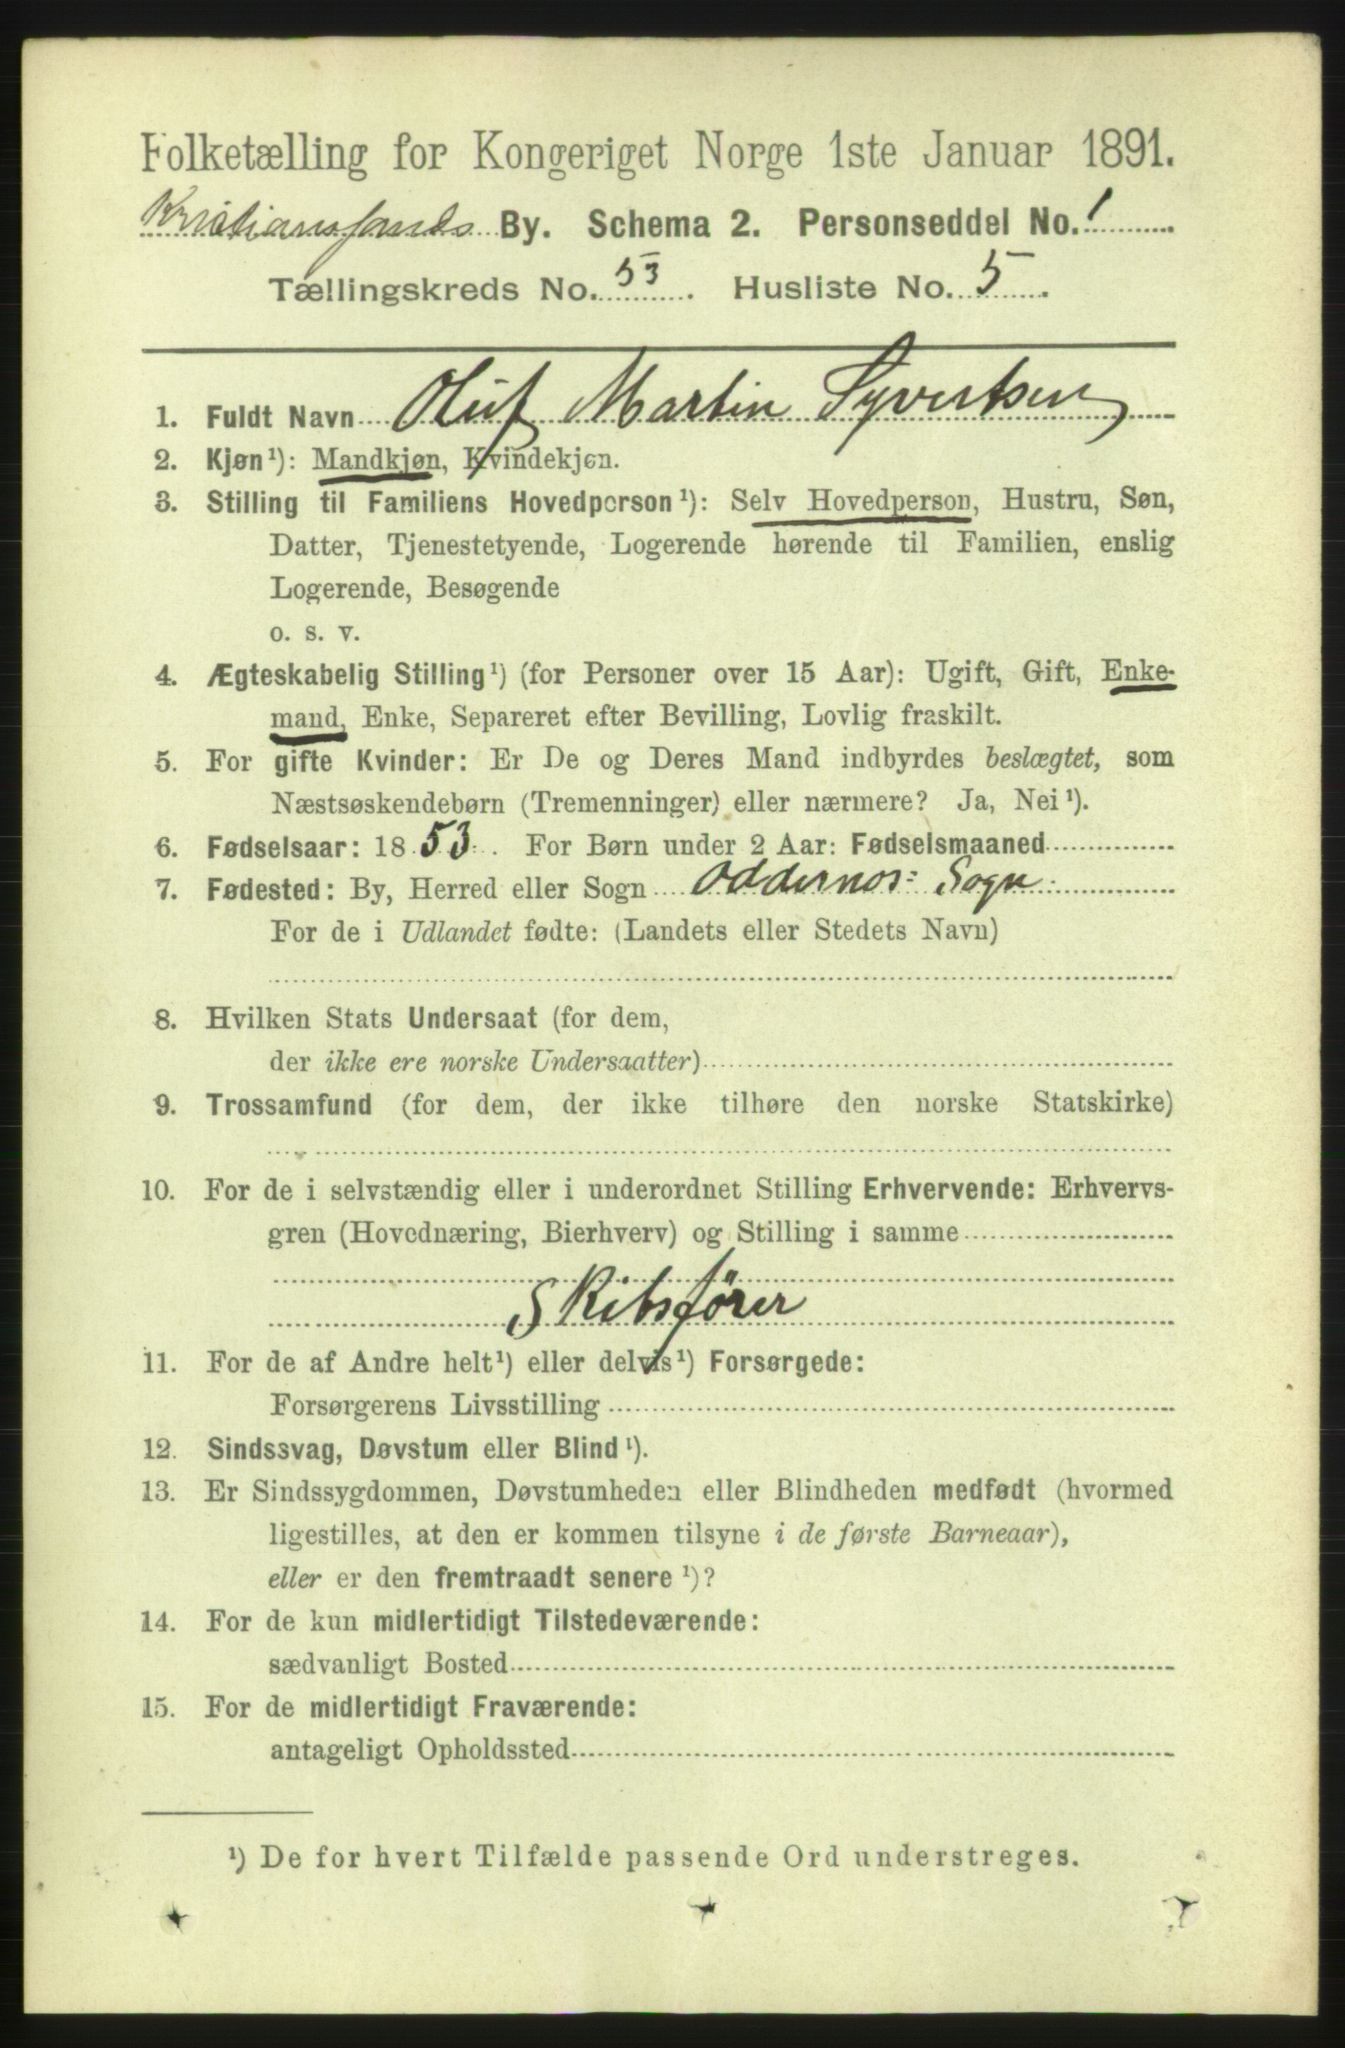 Folketælling for Kongeriget Norge 1ste Januar 1891.
Kristianssands By. Schema 2. Personseddel No. 1
Tællingskreds No. 53. Husliste No. 5.
1. Fuldt Navn Oluf Martin Syvertsen
2. Kjøn¹): Mandkjøn, Kvindekjøn.
3. Stilling til Familiens Hovedperson¹): Selv Hovedperson, Hustru, Søn,
Datter, Tjenestetyende, Logerende hørende til Familien, enslig
Logerende, Besøgende
o. s. v.
4. Ægteskabelig Stilling¹) (for Personer over 15 Aar): Ugift, Gift, Enke-
mand, Enke, Separeret efter Bevilling, Lovlig fraskilt.
5. For gifte Kvinder: Er De og Deres Mand indbyrdes beslægtet, som
Næstsøskendebørn (Tremenninger) eller nærmere? Ja, Nei¹).
6. Fødselsaar: 1853. For Børn under 2 Aar: Fødselsmaaned
7. Fødested: By, Herred eller Sogn Oddernes Sogn
For de i Udlandet fødte: (Landets eller Stedets Navn)
8. Hvilken Stats Undersaat (for dem,
der ikke ere norske Undersaatter)
9. Trossamfund (for dem, der ikke tilhøre den norske Statskirke)
10. For de i selvstændig eller i underordnet Stilling Erhvervende: Erhvervs-
gren (Hovednæring, Bierhverv) og Stilling i samme
Skibsfører
11. For de af Andre helt¹) eller delvis¹) Forsørgede:
Forsørgerens Livsstilling
12. Sindssvag, Døvstum eller Blind¹).
13. Er Sindssygdommen, Døvstumheden eller Blindheden medfødt (hvormed
ligestilles, at den er kommen tilsyne i de første Barneaar),
eller er den fremtraadt senere¹)?
14. For de kun midlertidigt Tilstedeværende:
sædvanligt Bosted
15. For de midlertidigt Fraværende:
antageligt Opholdssted
¹) De for hvert Tilfælde passende Ord understreges.